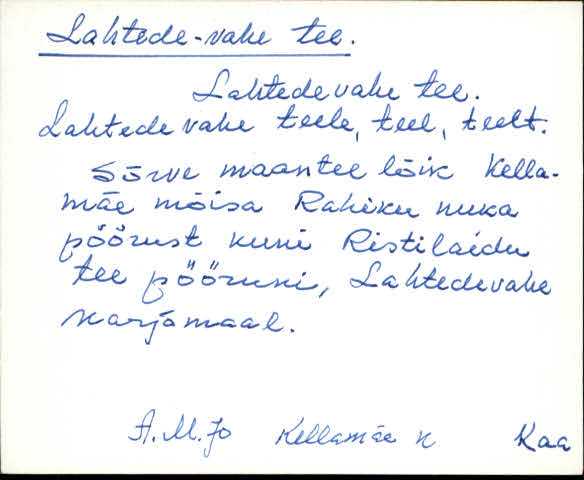 Lahtede-vahe tee.
Lahtedevahe tee.
Lahtede vahe teele, teel, teelt.
Sõrve maantee lõik Kella-
mäe mõisa Rahiku nuka
pöörust kuni Ristilaidu
tee pööruni, Lahtedevahe
karjamaal.
A.M.Jo Kellamäe k Kaa